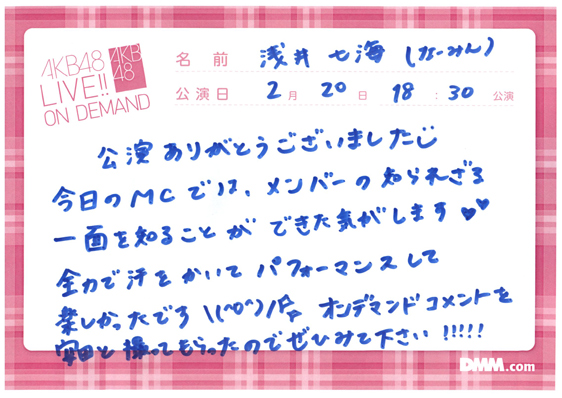 AKB48
LIVE!!
ON DEMAND
AKB
48
名前 浅井 七海 (なーみん)
公演日 2月 20日 18:30 公演
公演ありがとうございました
今日のMCでは、メンバーの知られざる
一面を知ることができた気がします♥♥
全力で汗をかいてパフォーマンスして
楽しかったです \(^o^)/ オンデマンドコメントを
安田と撮ってもらったのでぜひみて下さい !!!!!
DMM.com